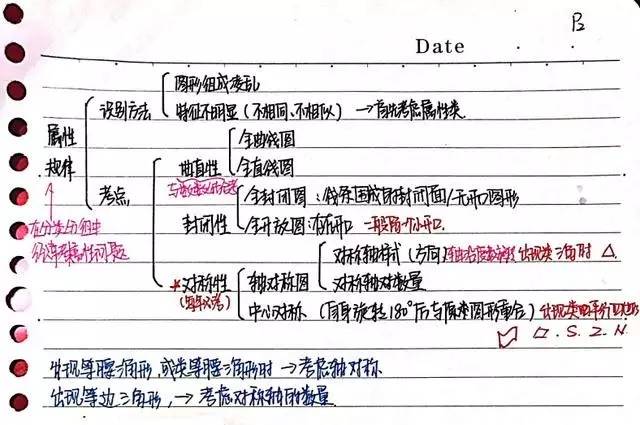 B
Date
图形组成凌乱
识别方法
特征不明显(不相同、不相似)→首先考虑属性类
属性规律
全曲线图
曲直性
全直线图
考点
全封闭图:线条围成的封闭面/无开口图形
封闭性
全开放图:有开口 一般留一个小开口.
在分类分组中
对称轴样式(方向) 出现类三角时 △
*对称性 轴对称图
对称轴对数量
中心对称(自身旋转180°后与原来图形重合)
▱.S.Z.N.
出现等腰三角形,或类等腰三角形时→考虑轴对称
出现等边三角形,→考虑对称轴的数量